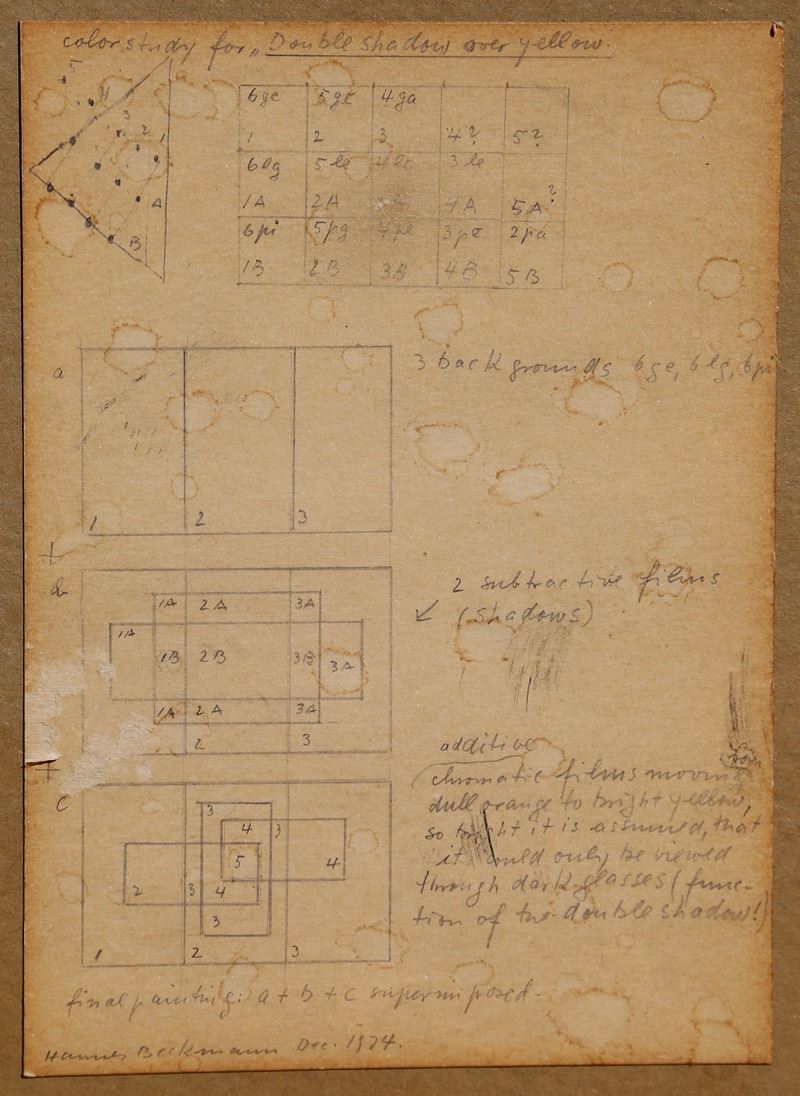 color study for „Double shadow over yellow.
5
4
3
2
1
A
B
6ge 5ge 4ga
1 2 3 4? 5?
6lg 5le 4le 3le
1A 2A 3A 4A 5A?
6pi 5pg 4pe 3pe 2pa
1B 2B 3B 4B 5B
a
3 backgrounds 6ge, 6lg, 6pi
1 2 3
+
b
2 subtractive films
↙ (shadows)
1A 2A 3A
1A
1B 2B 3B 3A
1A 2A 3A
2 3
+
additive
c
chromatic films moving from
dull orange to bright yellow,
so bright it is assumed, that
it could only be viewed
through dark glasses (func-
tion of the double shadow!)
3
4 3
5 4
2 3 4
3
1 2 3
final painting: a + b + c superimposed.
Hannes Beckmann Dec. 1974.